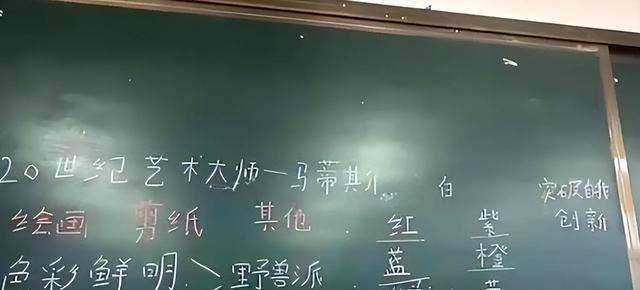 20世纪艺术大师—马蒂斯 白 突破自我
绘画 剪纸 其他. 红 紫 创新
色彩鲜明 野兽派 蓝 橙